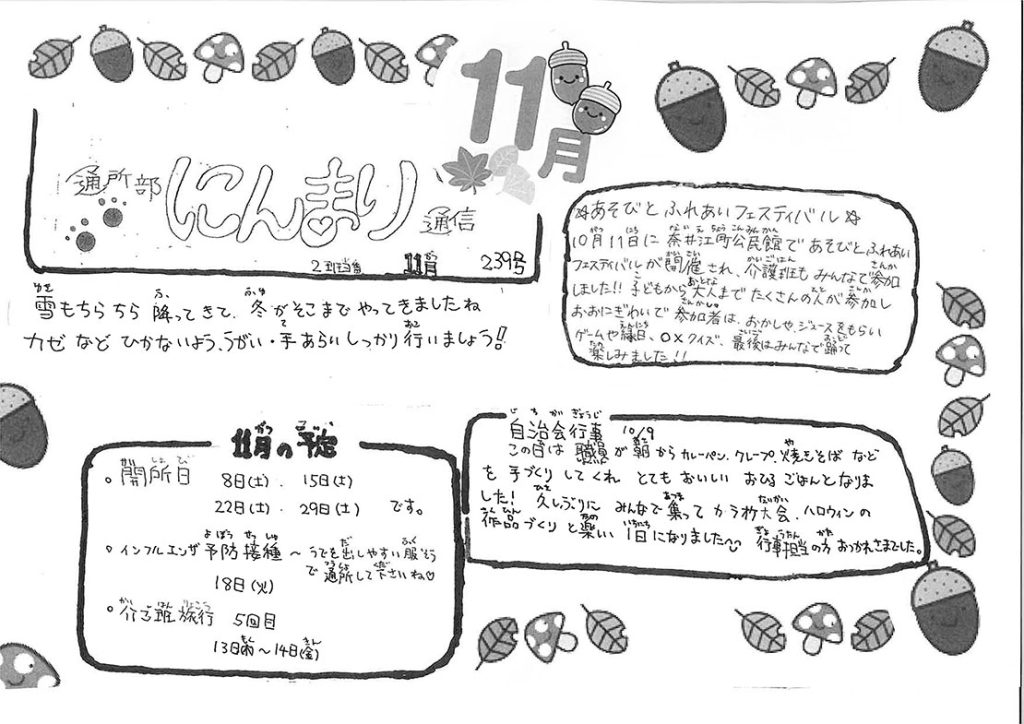 11月
通所部 にんまり 通信
2班担当 11月 239号
雪もちらちら降ってきて、冬がそこまでやってきましたね
カゼなどひかないよう、うがい・手あらいしっかり行いましょう!!
☆あそびとふれあいフェスティバル☆
10月11日に奈井江町公民館であそびとふれあい
フェスティバルが開催され、介護班もみんなで参加
しました!! 子どもから大人までたくさんの人が参加し
おおにぎわいで参加者は、おかしや、ジュースをもらい
ゲームや縁日、○×クイズ、最後はみんなで踊って
楽しみました!!
自治会行事 10/9
この日は職員が朝からカレーパン、クレープ、焼きそばなど
を手づくりしてくれとてもおいしいおひるごはんとなりま
した! 久しぶりにみんなで集ってカラオケ大会、ハロウィンの
作品づくりと楽しい1日になりました 行事担当の方おつかれさまでした。
11月の予定
開所日 8日(土)、15日(土)
22日(土)、29日(土)です。
インフルエンザ予防接種〜うでを出しやすい服そう
で通所して下さいね♡
18日(火)
介護班旅行 5回目
13日(木)〜14日(金)